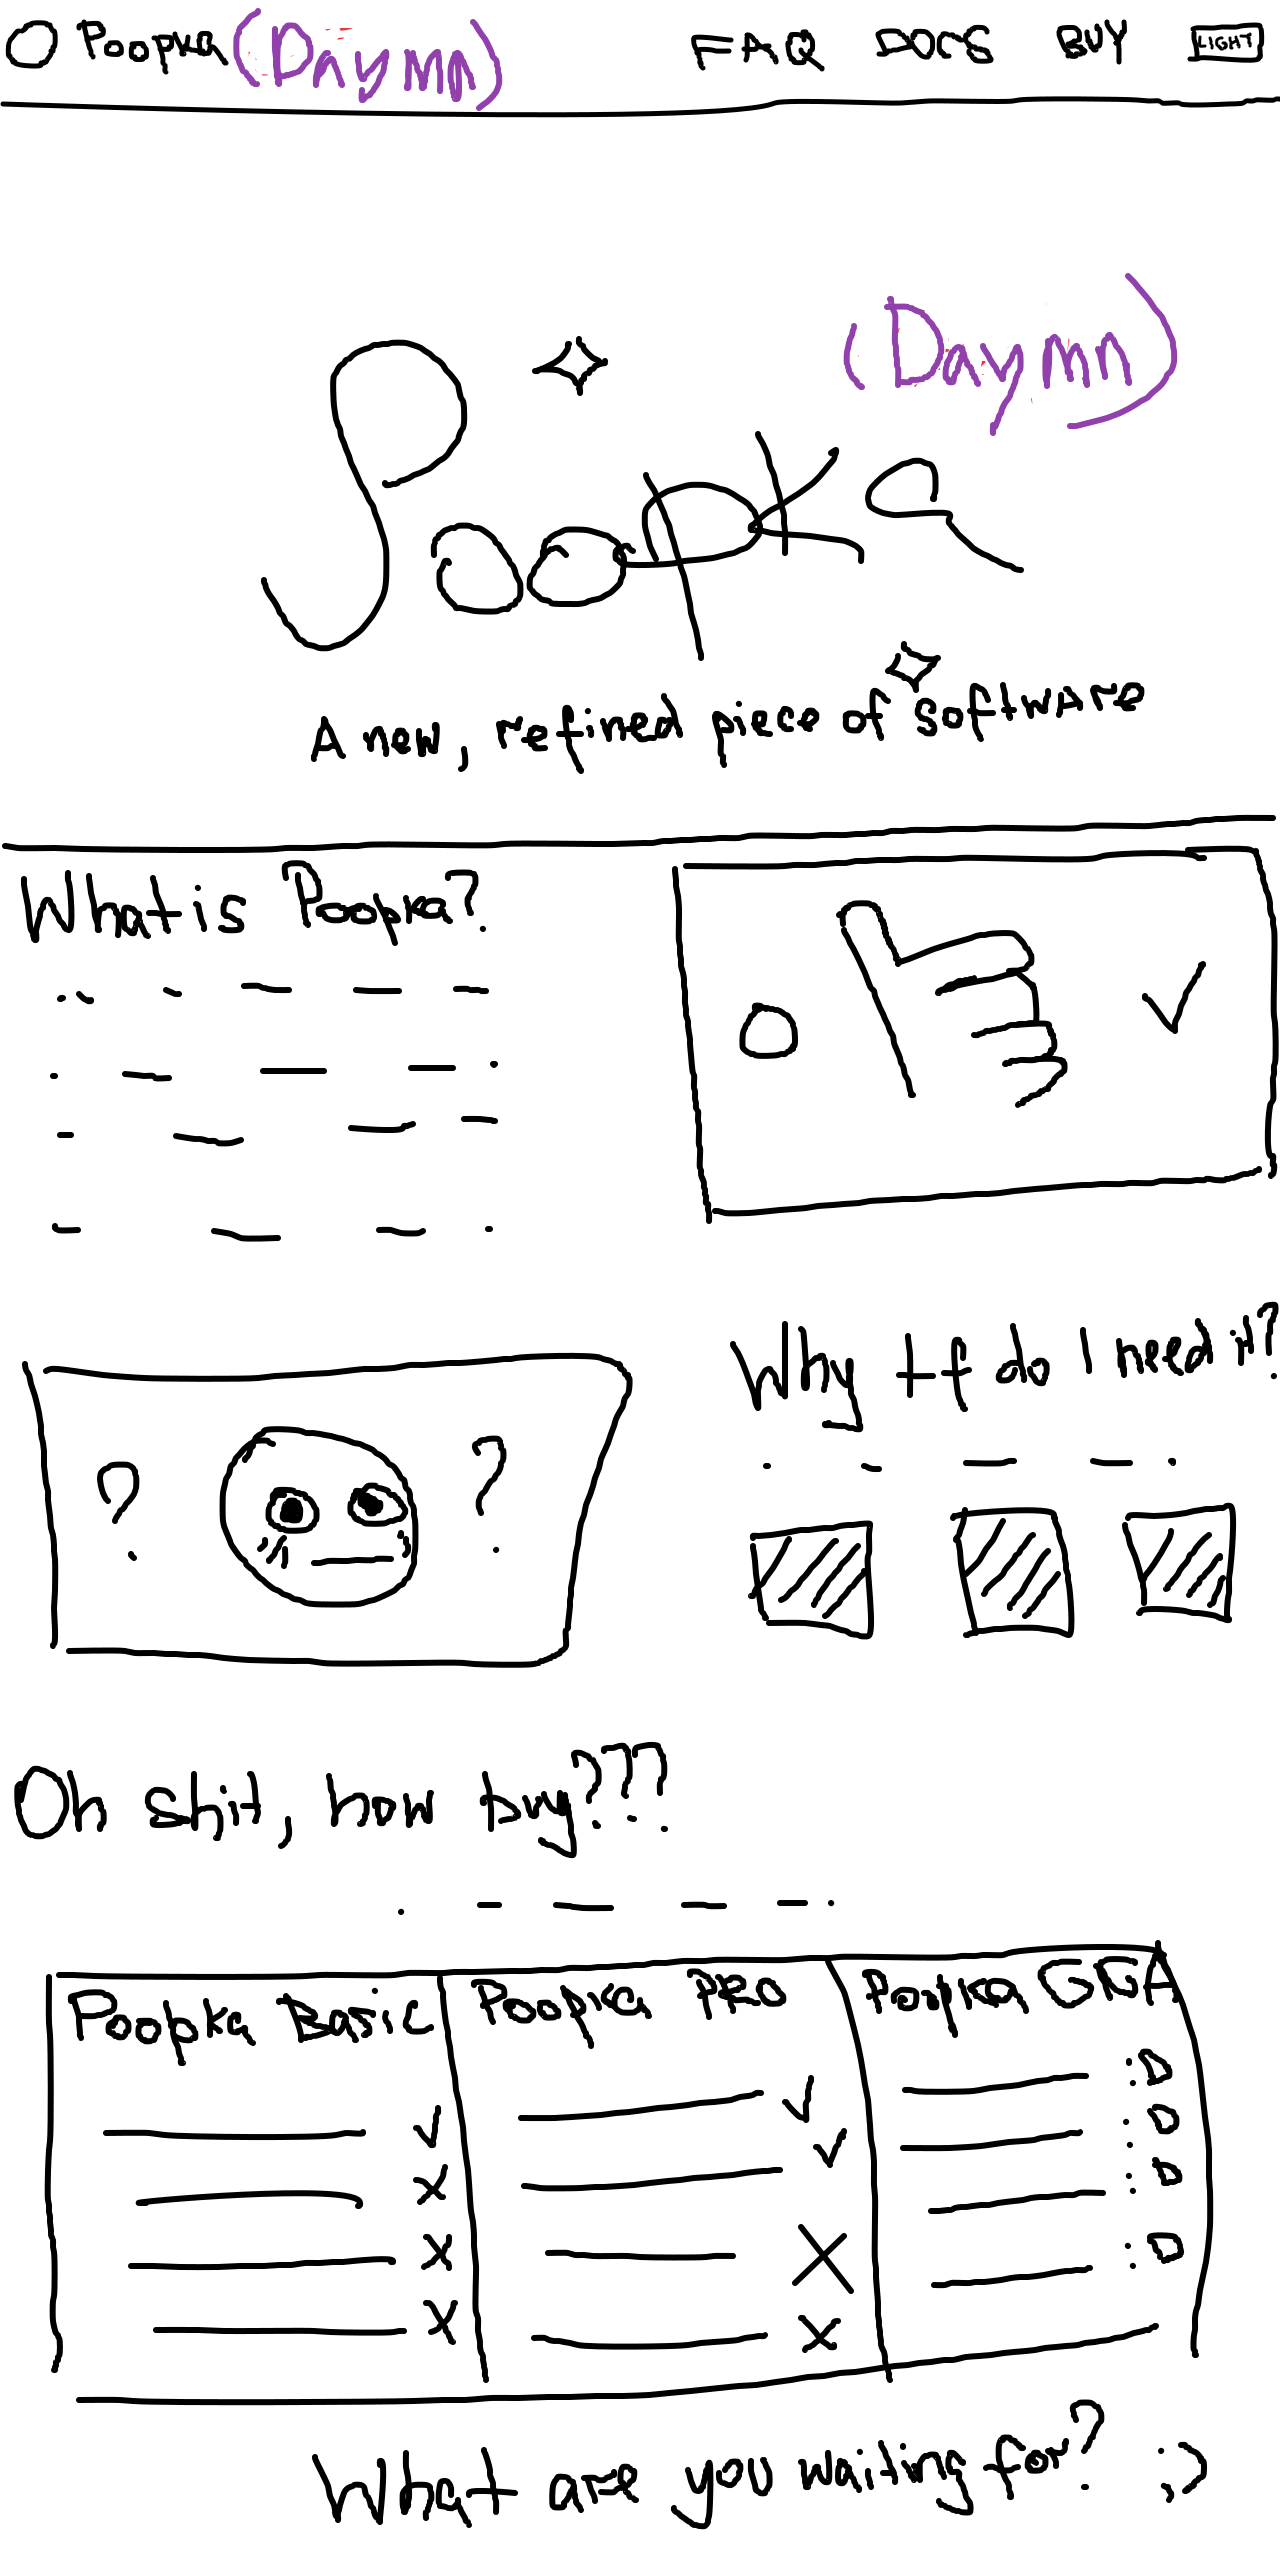 Poopka (Daymn) FAQ DOCS BUY LIGHT
(Daymn)
Poopka
A new, refined piece of software
What is Poopka?
Why tf do I need it?
? ?
Oh shit, how buy???
Poopka Basic Poopka PRO Poopka GGA
:D
:D
:D
:D
What are you waiting for? ;)